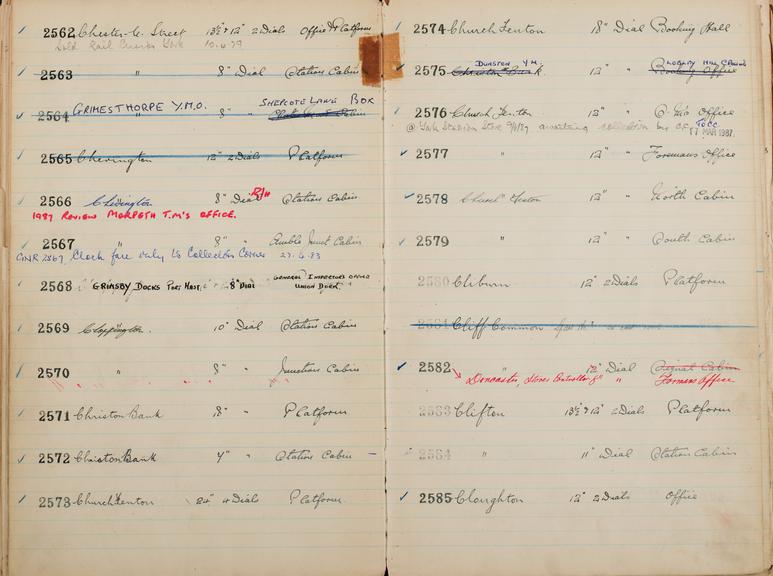 2562 Chester-le-Street 13½ & 12" 2 Dials Office & Platform
Sold Rail Curios York 10.4.79
2563 " 8" Dial Station Cabin
GRIMESTHORPE Y.M.O. SHEPCOTE LANE BOX
2564 " 8" " Cabin
2565 Chevington 12" 2 Dials Platform
2566 Chevington 8" Dial R/H Station Cabin
1987 REVIEW MORPETH T.M'S OFFICE.
2567 " 8" " Amble Junct Cabin
GNR 2567, Clock face only to Collectors Corner 27.4.83
2568 GRIMSBY DOCKS PORT MAST. 8" DIAL GENERAL INSPECTORS OFFICE
UNION DOCK.
2569 10" Dial Station Cabin
2570 " 8" " Junction Cabin
2571 Christon Bank 18" " Platform
2572 Christon Bank 4" " Station Cabin
2573 Church Fenton 24" 4 Dials Platform
2574 Church Fenton 18" Dial Booking Hall
DUNSTON Y.M. NORWAY HILL
2575 Christon Bank 12" " Booking Office
2576 Church Fenton 12" " Office
@ York Station Store awaiting collection by TOCC
17 MAR 1987
2577 " 12" " Foremans Office
2578 Church Fenton 12" " North Cabin
2579 " 12" " South Cabin
2580 Cliburn 12" 2 Dials Platform
2581 Cliff Common
2582 " 12" Dial Signal Cabin
Doncaster, Stores Controller 8" " Formans Office
2583 Clifton 13½ & 12" 2 Dials Platform
2584 " 11" Dial Station Cabin
2585 Cloughton 12" 2 Dials Office